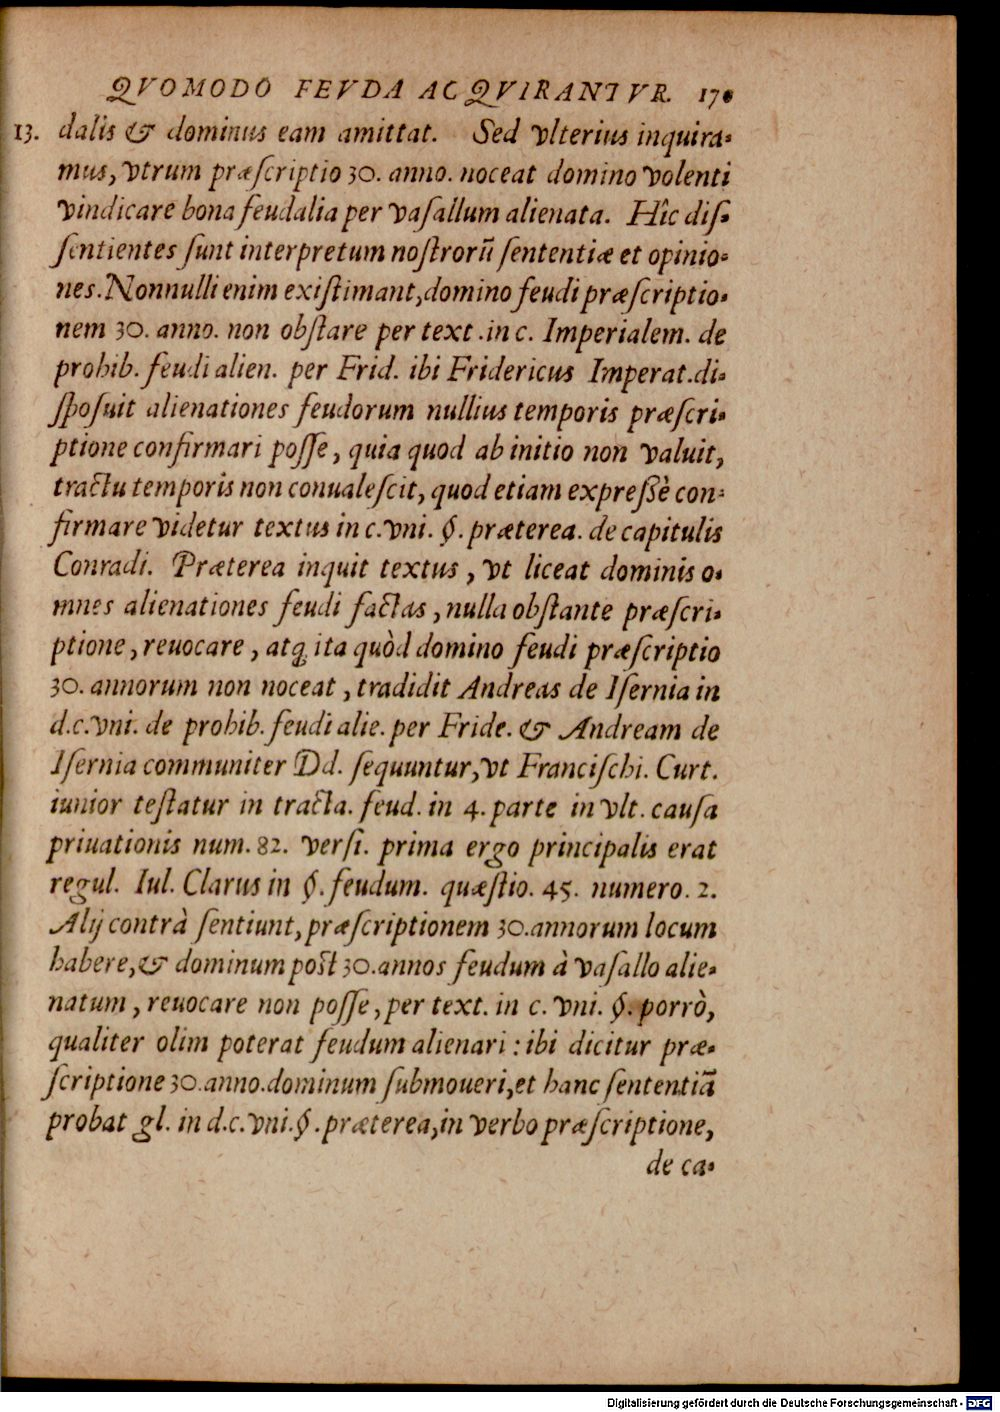 QVOMODO FEVDA ACQVIRANTVR. 170
13. dalis & dominus eam amittat. Sed vlterius inquira-
mus, vtrum præſcriptio 30. anno. noceat domino volenti
vindicare bona feudalia per vaſallum alienata. Hîc diſ-
ſentientes ſunt interpretum noſtrorũ ſententiæ et opinio-
nes. Nonnulli enim exiſtimant, domino feudi præſcriptio-
nem 30. anno. non obſtare per text. in c. Imperialem. de
prohib. feudi alien. per Frid. ibi Fridericus Imperat. di-
ſpoſuit alienationes feudorum nullius temporis præſcri-
ptione confirmari poſſe, quia quod ab initio non valuit,
tractu temporis non conualeſcit, quod etiam expreßè con-
firmare videtur textus in c. vni. §. præterea. de capitulis
Conradi. Præterea inquit textus, vt liceat dominis o-
mnes alienationes feudi factas, nulla obſtante præſcri-
ptione, reuocare, atq; ita quòd domino feudi præſcriptio
30. annorum non noceat, tradidit Andreas de Iſernia in
d.c. vni. de prohib. feudi alie. per Fride. & Andream de
Iſernia communiter Dd. ſequuntur, vt Franciſchi. Curt.
iunior teſtatur in tracta. feud. in 4. parte in vlt. cauſa
priuationis num. 82. verſi. prima ergo principalis erat
regul. Iul. Clarus in §. feudum. quæſtio. 45. numero. 2.
Alij contrà ſentiunt, præſcriptionem 30. annorum locum
habere, & dominum poſt 30. annos feudum à vaſallo alie-
natum, reuocare non poſſe, per text. in c. vni. §. porrò,
qualiter olim poterat feudum alienari : ibi dicitur præ-
ſcriptione 30. anno. dominum ſubmoueri, et hanc ſententiã
probat gl. in d.c. vni. §. præterea, in verbo præſcriptione,
de ca-
Digitalisierung gefördert durch die Deutsche Forschungsgemeinschaft - DFG